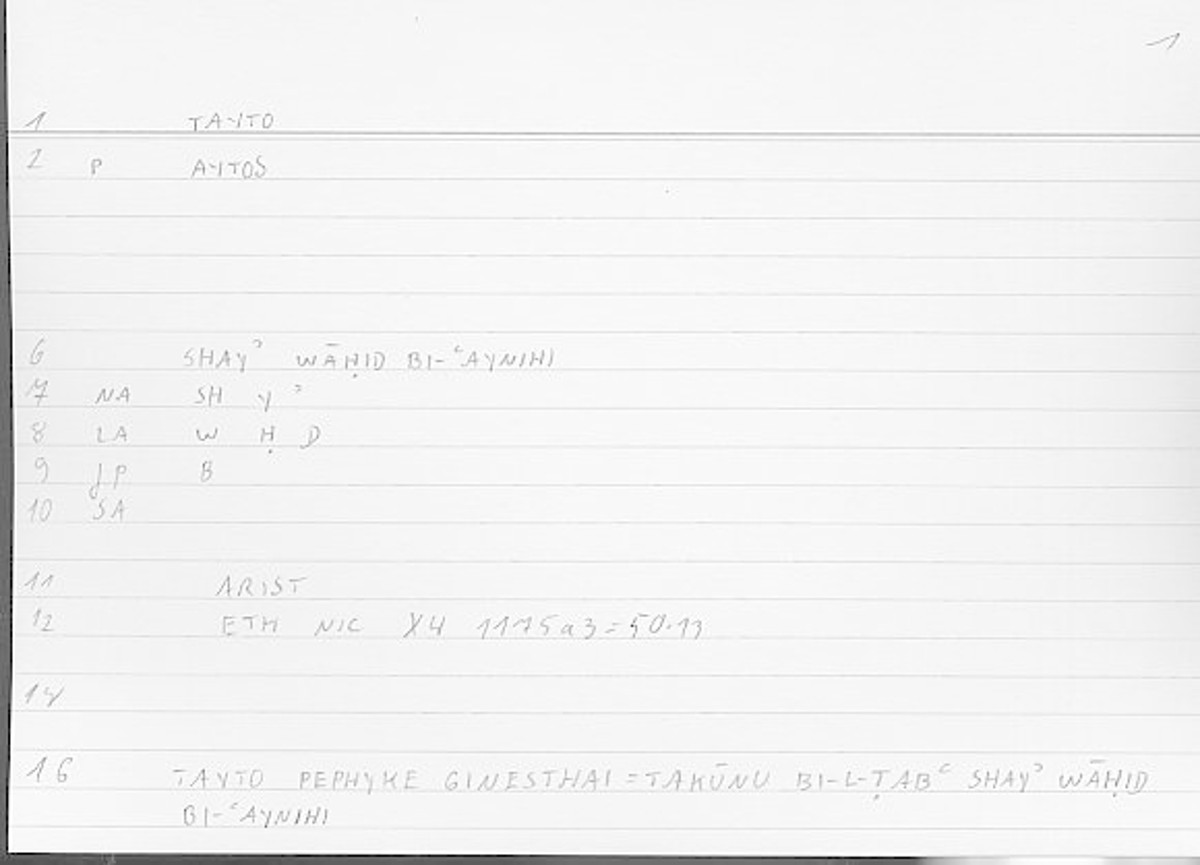 1
1 TAYTO
2 P AYTOS
6 SHAYʾ WĀḤID BI-ʿAYNIHI
7 NA SH Y ʾ
8 LA W Ḥ D
9 JP B
10 SA
11 ARIST
12 ETH NIC X4 1175a3=50.13
14
16 TAYTO PEPHYKE GINESTHAI=TAKŪNU BI-L-ṬABʿ SHAYʾ WĀḤID
BI-ʿAYNIHI